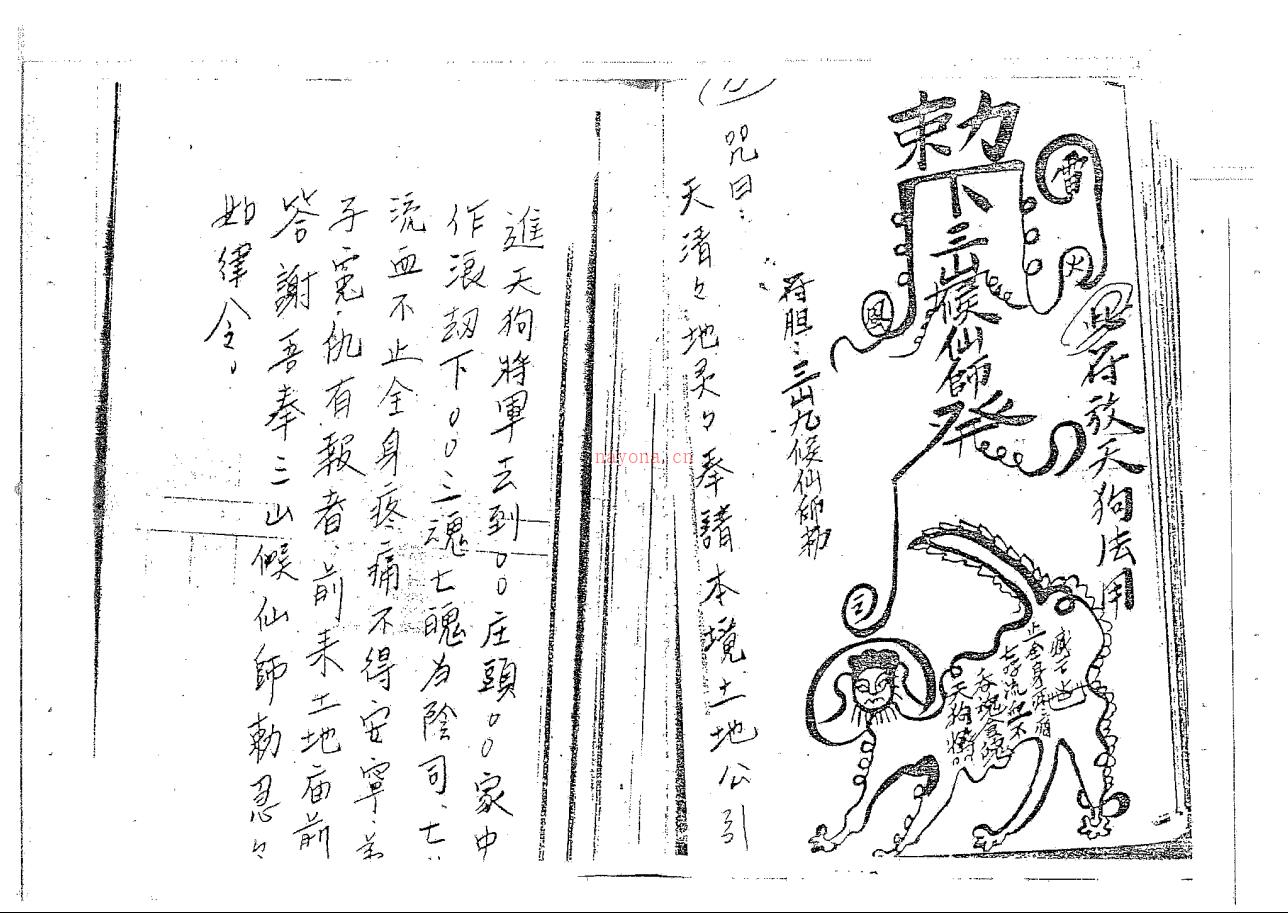 此符放天狗法用
雷
火
勅下三山候仙師發
風
天狗將
吞魂食魄
七孔流血不
止全身疼痛
符胆：三山九候仙師勅
咒曰：
天清々地灵々奉請本境土地公引
進天狗將軍去到○○庄頭○○家中
作浪刼下○○三魂七魄为陰司、七
流血不止全身疼痛不得安寧、弟
子冤仇有報者、前来土地庙前
答謝吾奉三山候仙師勅忍々
如律令。
nayona.cn